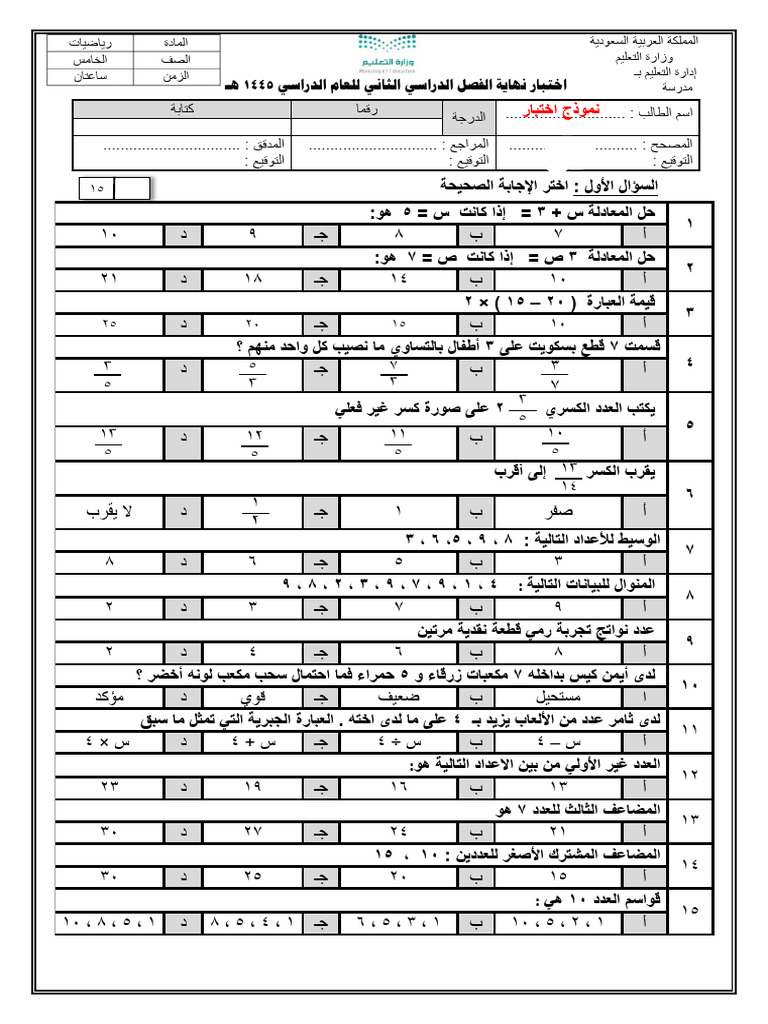 المملكة العربية السعودية
وزارة التعليم
إدارة التعليم بـ
مدرسة
وزارة التعليم
Ministry of Education
المادة رياضيات
الصف الخامس
الزمن ساعتان
اختبار نهاية الفصل الدراسي الثاني للعام الدراسي ١٤٤٥ هـ
اسم الطالب : ............................ نموذج اختبار
الدرجة رقما كتابة
المصحح : .......... .........
التوقيع :
المراجع : ..............................
التوقيع :
المدقق : ..............................
التوقيع :
السؤال الأول : اختر الإجابة الصحيحة
١٥
١ حل المعادلة س + ٣ = إذا كانت س = ٥ هو:
أ ٧ ب ٨ جـ ٩ د ١٠
٢ حل المعادلة ٣ ص = إذا كانت ص = ٧ هو:
أ ١٠ ب ١٤ جـ ١٨ د ٢١
٣ قيمة العبارة ( ٢٠ – ١٥ ) × ٢
أ ١٠ ب ١٥ جـ ٢٠ د ٢٥
٤ قسمت ٧ قطع بسكويت على ٣ أطفال بالتساوي ما نصيب كل واحد منهم ؟
أ ٣/٧ ب ٧/٣ جـ ٥/٣ د ٣/٥
٥ يكتب العدد الكسري ٢ ٣/٥ على صورة كسر غير فعلي
أ ١٠/٥ ب ١١/٥ جـ ١٢/٥ د ١٣/٥
٦ يقرب الكسر ١٣/١٤ إلى أقرب
أ صفر ب ١ جـ ١/٢ د لا يقرب
٧ الوسيط للأعداد التالية : ٨ ، ٩ ، ٥، ٦ ، ٣
أ ٣ ب ٥ جـ ٦ د ٨
٨ المنوال للبيانات التالية : ٤ ، ١ ، ٩ ، ٧ ، ٩ ، ٣ ، ٢ ، ٨ ، ٩
أ ٩ ب ٧ جـ ٣ د ٢
٩ عدد نواتج تجربة رمي قطعة نقدية مرتين
أ ٨ ب ٦ جـ ٤ د ٢
١٠ لدى أيمن كيس بداخله ٧ مكعبات زرقاء و ٥ حمراء فما احتمال سحب مكعب لونه أخضر ؟
ا مستحيل ب ضعيف جـ قوي د مؤكد
١١ لدى ثامر عدد من الألعاب يزيد بـ ٤ على ما لدى اخته . العبارة الجبرية التي تمثل ما سبق
أ س – ٤ ب س ÷ ٤ جـ س + ٤ د س × ٤
١٢ العدد غير الأولي من بين الاعداد التالية هو:
أ ١٣ ب ١٦ جـ ١٩ د ٢٣
١٣ المضاعف الثالث للعدد ٧ هو
أ ٢١ ب ٢٤ جـ ٢٧ د ٣٠
١٤ المضاعف المشترك الأصغر للعددين : ١٠ ، ١٥
أ ١٥ ب ٢٠ جـ ٢٥ د ٣٠
١٥ قواسم العدد ١٠ هي :
أ ١ ، ٢ ، ٥ ، ١٠ ب ١ ، ٣ ، ٥ ، ٦ جـ ١ ، ٤ ، ٥ ، ٨ د ١ ، ٥ ، ٨ ، ١٠